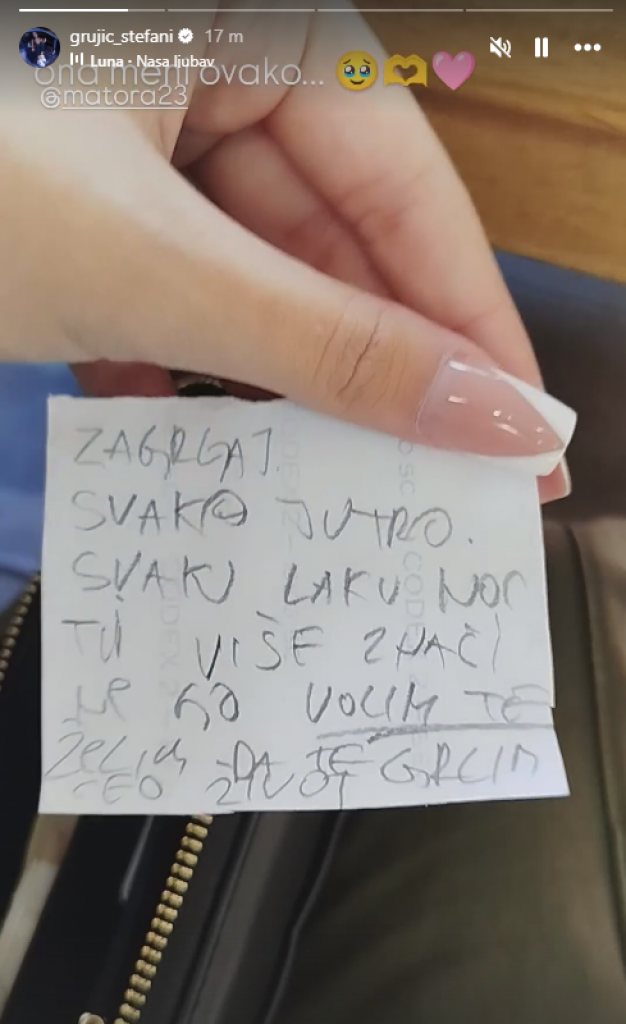 grujic_stefani 17 m
Luna · Nasa ljubav
ona meni ovako... 🥹🫶🩷
@matora23
ZAGRGAJ.
SVAKO JUTRO.
SVAKU LAKU NOĆ
TI VIŠE ZNAČI
NEGO VOLIM TE
ŽELIM DA TE GRLIM
CEO ŽIVOT